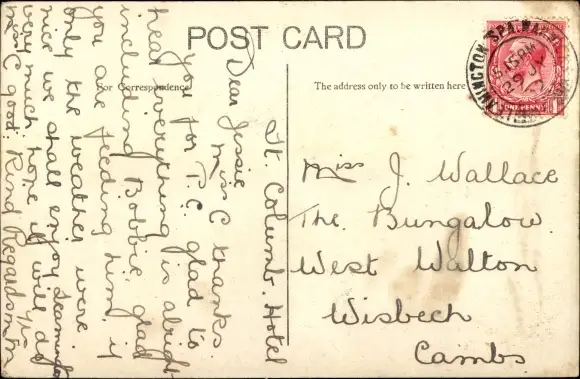 POST CARD
For Correspondence
The address only to be written here
LEAMINGTON SPA
ONE PENNY
St. Columb. Hotel
Dear Jessie
Miss C thanks
you for P.C. glad to
hear everything is alright
including Bobbie, glad
you are feeding him, if
only the weather were
nice we shall enjoy Leamington
very much hope it will do
Miss C good: Kind Regards
Miss J. Wallace
The. Bungalow.
West Walton
Wisbech
Cambs